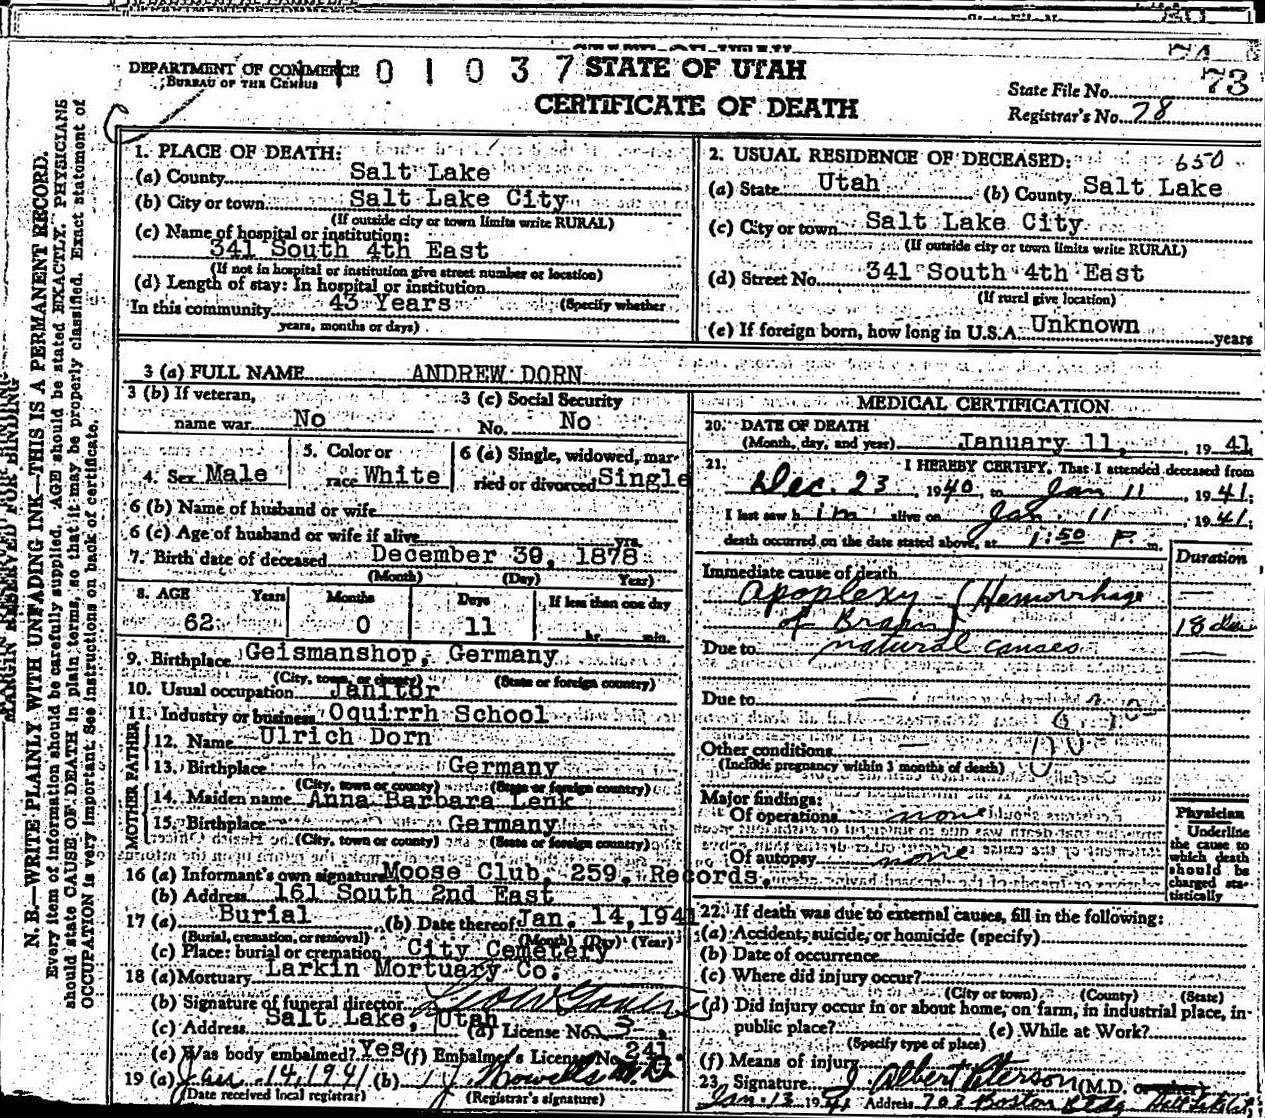 DEPARTMENT OF COMMERCE
BUREAU OF THE CENSUS
1 0 1 0 3 7
STATE OF UTAH
CERTIFICATE OF DEATH
State File No. 73
Registrar's No. 78
N. B.—WRITE PLAINLY WITH UNFADING INK—THIS IS A PERMANENT RECORD.
Every item of information should be carefully supplied. AGE should be stated EXACTLY. PHYSICIANS
should state CAUSE OF DEATH in plain terms, so that it may be properly classified. Exact statement of
OCCUPATION is very important. See instructions on back of certificate.
MARGIN RESERVED FOR BINDING
1. PLACE OF DEATH:
(a) County Salt Lake
(b) City or town Salt Lake City
(If outside city or town limits write RURAL)
(c) Name of hospital or institution:
341 South 4th East
(If not in hospital or institution give street number or location)
(d) Length of stay: In hospital or institution
In this community 43 Years (Specify whether
years, months or days)
2. USUAL RESIDENCE OF DECEASED: 650
(a) State Utah (b) County Salt Lake
(c) City or town Salt Lake City
(If outside city or town limits write RURAL)
(d) Street No. 341 South 4th East
(If rural give location)
(e) If foreign born, how long in U.S.A. Unknown years
3 (a) FULL NAME ANDREW DORN
3 (b) If veteran,
name war No
3 (c) Social Security
No. No
4. Sex Male
5. Color or
race White
6 (a) Single, widowed, mar-
ried or divorced Single
6 (b) Name of husband or wife
6 (c) Age of husband or wife if alive yrs.
7. Birth date of deceased December 30, 1878
(Month) (Day) Year)
8. AGE Years Months Days If less than one day
62 0 11 hr. min.
9. Birthplace Geismanshop, Germany
(City, town, or county) (State or foreign country)
10. Usual occupation Janitor
11. Industry or business Oquirrh School
FATHER
12. Name Ulrich Dorn
13. Birthplace Germany
(City, town or county) (State or foreign country)
MOTHER
14. Maiden name Anna Barbara Lenk
15. Birthplace Germany
(City, town or county) (State or foreign country)
16 (a) Informant's own signature Moose Club, 259. Records.
(b) Address 161 South 2nd East
17 (a) Burial (b) Date thereof Jan. 14, 1941
(Burial, cremation, or removal) (Month) (Day) (Year)
(c) Place: burial or cremation City Cemetery
18 (a) Mortuary Larkin Mortuary Co.
(b) Signature of funeral director
(c) Address Salt Lake, Utah (d) License No. 3
(e) Was body embalmed? Yes (f) Embalmer's License No. 241
19 (a) Jan. 14, 1941 (b)
(Date received local registrar) (Registrar's signature)
MEDICAL CERTIFICATION
20. DATE OF DEATH
(Month, day, and year) January 11, 1941
21. I HEREBY CERTIFY, That I attended deceased from
Dec. 23, 1940, to Jan 11, 1941;
I last saw h im alive on Jan. 11, 1941;
death occurred on the date stated above, at 1:50 P. m.
Duration
Immediate cause of death
Apoplexy - (Hemorrhage
of Brain) 18 da
Due to natural causes
Due to
Other conditions
(Include pregnancy within 3 months of death)
Major findings:
Of operations none
Of autopsy none
Physician
Underline
the cause to
which death
should be
charged sta-
tistically
22. If death was due to external causes, fill in the following:
(a) Accident, suicide, or homicide (specify)
(b) Date of occurrence
(c) Where did injury occur?
(City or town) (County) (State)
(d) Did injury occur in or about home, on farm, in industrial place, in
public place? (e) While at Work?
(Specify type of place)
(f) Means of injury
23. Signature J Albert Peterson (M.D. or other)
Jan. 13 1941 Address 703 Boston Bldg